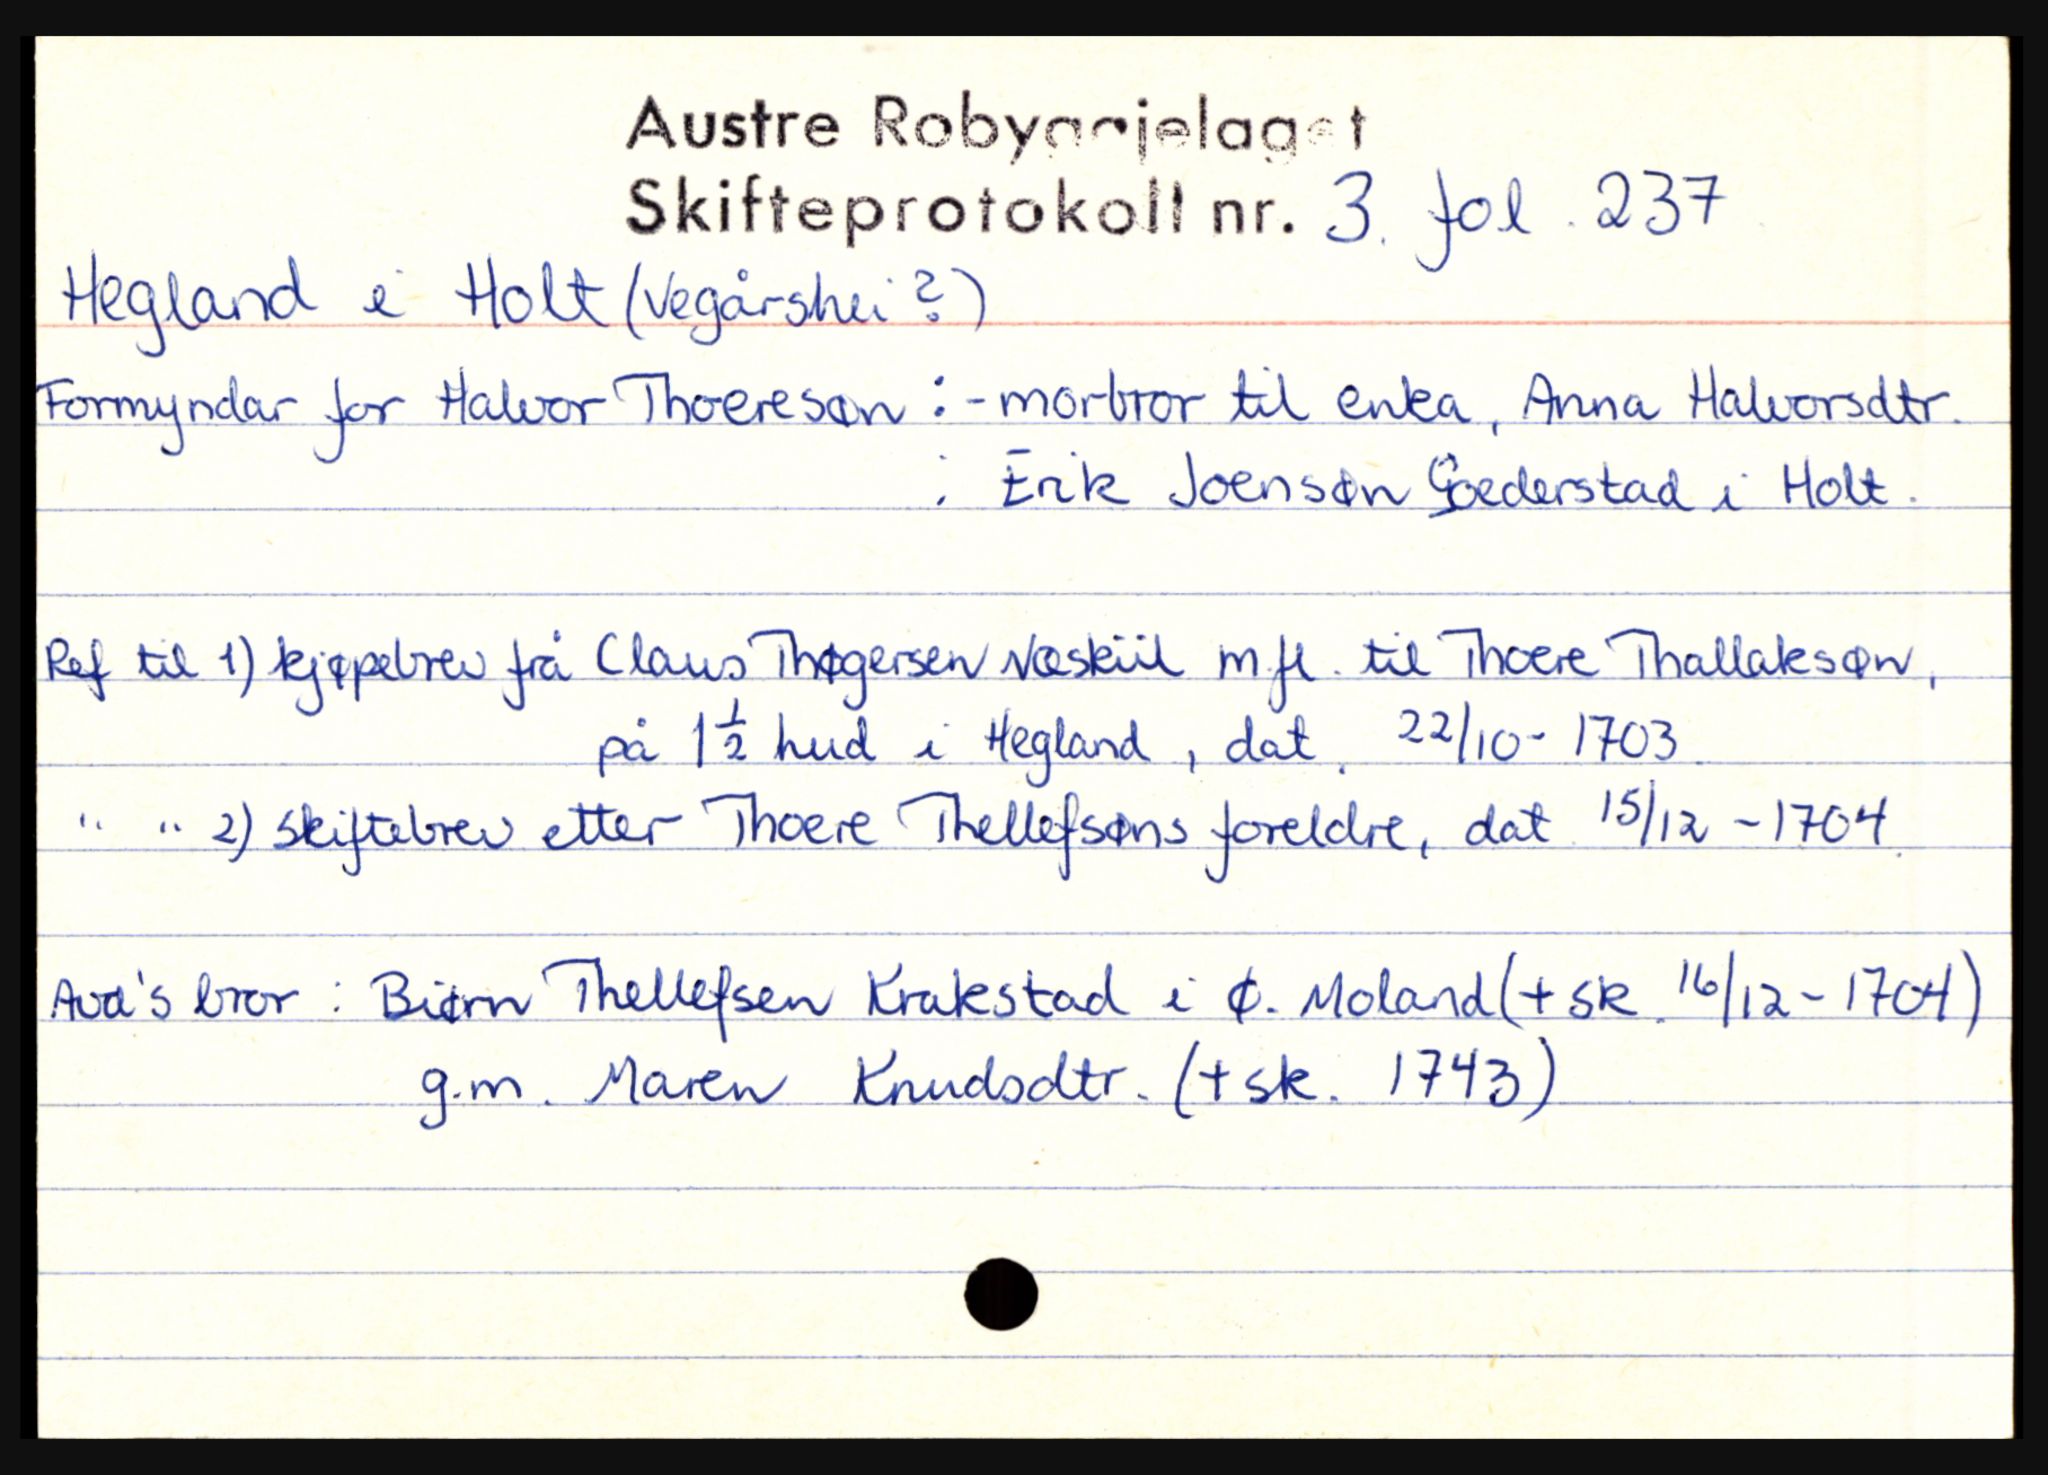 Austre Robyggjelaget
Skifteprotokoll nr. 3. fol. 237
Hegland i Holt (Vegårshei?)
Formyndar for Halvor Thoeresøn : - morbror til enka, Anna Halvorsdtr.
: Erik Joensøn Goederstad i Holt.
Ref til 1) kjøpebrev frå Claus Thøgersen Næskiil m.fl. til Thoere Thallaksøn,
på 1 1/2 hud i Hegland, dat. 22/10 - 1703
" " 2) skiftebrev etter Thoere Thellefsøns foreldre, dat 15/12 - 1704.
Avd's bror : Biørn Thellefsen Krakstad i Ø. Moland (+ sk. 16/12 - 1704)
g.m. Maren Knudsdtr. (+ sk. 1743)